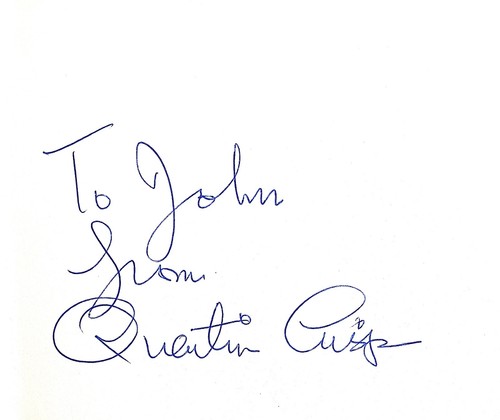 To John
from
Quentin Crisp